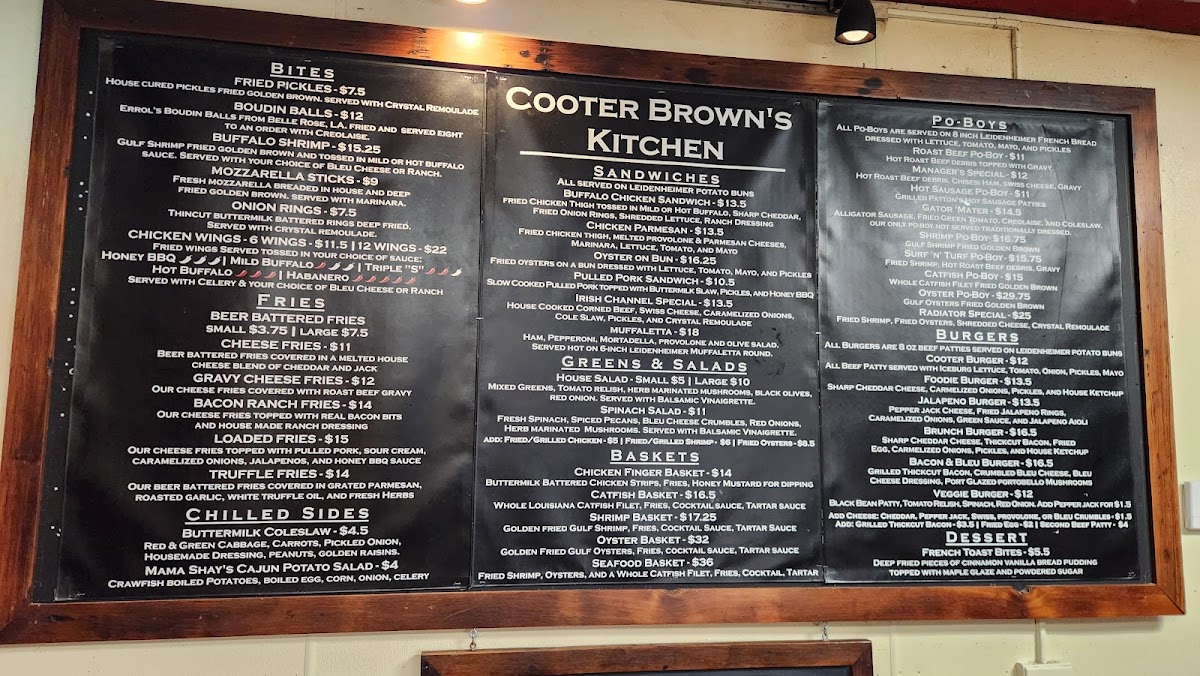 BITES
FRIED PICKLES - $7.5
HOUSE CURED PICKLES FRIED GOLDEN BROWN. SERVED WITH CRYSTAL REMOULADE
BOUDIN BALLS - $12
ERROL'S BOUDIN BALLS FROM BELLE ROSE, LA. FRIED AND SERVED EIGHT
TO AN ORDER WITH CREOLAISE.
BUFFALO SHRIMP - $15.25
GULF SHRIMP FRIED GOLDEN BROWN AND TOSSED IN MILD OR HOT BUFFALO
SAUCE. SERVED WITH YOUR CHOICE OF BLEU CHEESE OR RANCH.
MOZZARELLA STICKS - $9
FRESH MOZZARELLA BREADED IN HOUSE AND DEEP
FRIED GOLDEN BROWN. SERVED WITH MARINARA.
ONION RINGS - $7.5
THINCUT BUTTERMILK BATTERED RINGS DEEP FRIED.
SERVED WITH CRYSTAL REMOULADE.
CHICKEN WINGS - 6 WINGS - $11.5 | 12 WINGS - $22
FRIED WINGS SERVED TOSSED IN YOUR CHOICE OF SAUCE:
HONEY BBQ | MILD BUFFALO | TRIPLE "S"
HOT BUFFALO | HABANERO
SERVED WITH CELERY & YOUR CHOICE OF BLEU CHEESE OR RANCH
FRIES
BEER BATTERED FRIES
SMALL $3.75 | LARGE $7.5
CHEESE FRIES - $11
BEER BATTERED FRIES COVERED IN A MELTED HOUSE
CHEESE BLEND OF CHEDDAR AND JACK
GRAVY CHEESE FRIES - $12
OUR CHEESE FRIES COVERED WITH ROAST BEEF GRAVY
BACON RANCH FRIES - $14
OUR CHEESE FRIES TOPPED WITH REAL BACON BITS
AND HOUSE MADE RANCH DRESSING
LOADED FRIES - $15
OUR CHEESE FRIES TOPPED WITH PULLED PORK, SOUR CREAM,
CARAMELIZED ONIONS, JALAPENOS, AND HONEY BBQ SAUCE
TRUFFLE FRIES - $14
OUR BEER BATTERED FRIES COVERED IN GRATED PARMESAN,
ROASTED GARLIC, WHITE TRUFFLE OIL, AND FRESH HERBS
CHILLED SIDES
BUTTERMILK COLESLAW - $4.5
RED & GREEN CABBAGE, CARROTS, PICKLED ONION,
HOUSEMADE DRESSING, PEANUTS, GOLDEN RAISINS.
MAMA SHAY'S CAJUN POTATO SALAD - $4
CRAWFISH BOILED POTATOES, BOILED EGG, CORN, ONION, CELERY
COOTER BROWN'S
KITCHEN
SANDWICHES
ALL SERVED ON LEIDENHEIMER POTATO BUNS
BUFFALO CHICKEN SANDWICH - $13.5
FRIED CHICKEN THIGH TOSSED IN MILD OR HOT BUFFALO, SHARP CHEDDAR,
FRIED ONION RINGS, SHREDDED LETTUCE, RANCH DRESSING
CHICKEN PARMESAN - $13.5
FRIED CHICKEN THIGH, MELTED PROVOLONE & PARMESAN CHEESES,
MARINARA, LETTUCE, TOMATO, AND MAYO
OYSTER ON BUN - $16.25
FRIED OYSTERS ON A BUN DRESSED WITH LETTUCE, TOMATO, MAYO, AND PICKLES
PULLED PORK SANDWICH - $10.5
SLOW COOKED PULLED PORK TOPPED WITH BUTTERMILK SLAW, PICKLES, AND HONEY BBQ
IRISH CHANNEL SPECIAL - $13.5
HOUSE COOKED CORNED BEEF, SWISS CHEESE, CARAMELIZED ONIONS,
COLE SLAW, PICKLES, AND CRYSTAL REMOULADE
MUFFALETTA - $18
HAM, PEPPERONI, MORTADELLA, PROVOLONE AND OLIVE SALAD.
SERVED HOT ON 6-INCH LEIDENHEIMER MUFFALETTA ROUND.
GREENS & SALADS
HOUSE SALAD - SMALL $5 | LARGE $10
MIXED GREENS, TOMATO RELISH, HERB MARINATED MUSHROOMS, BLACK OLIVES,
RED ONION. SERVED WITH BALSAMIC VINAIGRETTE.
SPINACH SALAD - $11
FRESH SPINACH, SPICED PECANS, BLEU CHEESE CRUMBLES, RED ONIONS,
HERB MARINATED MUSHROOMS. SERVED WITH BALSAMIC VINAIGRETTE.
ADD: FRIED/GRILLED CHICKEN - $5 | FRIED/GRILLED SHRIMP - $6 | FRIED OYSTERS - $8.5
BASKETS
CHICKEN FINGER BASKET - $14
BUTTERMILK BATTERED CHICKEN STRIPS, FRIES, HONEY MUSTARD FOR DIPPING
CATFISH BASKET - $16.5
WHOLE LOUISIANA CATFISH FILET, FRIES, COCKTAIL SAUCE, TARTAR SAUCE
SHRIMP BASKET - $17.25
GOLDEN FRIED GULF SHRIMP, FRIES, COCKTAIL SAUCE, TARTAR SAUCE
OYSTER BASKET - $32
GOLDEN FRIED GULF OYSTERS, FRIES, COCKTAIL SAUCE, TARTAR SAUCE
SEAFOOD BASKET - $36
FRIED SHRIMP, OYSTERS, AND A WHOLE CATFISH FILET, FRIES, COCKTAIL, TARTAR
PO-BOYS
ALL PO-BOYS ARE SERVED ON 8 INCH LEIDENHEIMER FRENCH BREAD
DRESSED WITH LETTUCE, TOMATO, MAYO, AND PICKLES
ROAST BEEF PO-BOY - $11
HOT ROAST BEEF DEBRIS TOPPED WITH GRAVY
MANAGER'S SPECIAL - $12
HOT ROAST BEEF DEBRIS, CHISESI HAM, SWISS CHEESE, GRAVY
HOT SAUSAGE PO-BOY - $11
GRILLED PATTON'S HOT SAUSAGE PATTIES
GATOR 'MATER - $14.5
ALLIGATOR SAUSAGE, FRIED GREEN TOMATO, CREOLAISE, AND COLESLAW.
OUR ONLY PO-BOY NOT SERVED TRADITIONALLY DRESSED.
SHRIMP PO-BOY - $16.75
GULF SHRIMP FRIED GOLDEN BROWN
SURF 'N' TURF PO-BOY - $15.75
FRIED SHRIMP, HOT ROAST BEEF DEBRIS, GRAVY
CATFISH PO-BOY - $15
WHOLE CATFISH FILET FRIED GOLDEN BROWN
OYSTER PO-BOY - $29.75
GULF OYSTERS FRIED GOLDEN BROWN
RADIATOR SPECIAL - $25
FRIED SHRIMP, FRIED OYSTERS, SHREDDED CHEESE, CRYSTAL REMOULADE
BURGERS
ALL BURGERS ARE 8 OZ BEEF PATTIES SERVED ON LEIDENHEIMER POTATO BUNS
COOTER BURGER - $12
ALL BEEF PATTY SERVED WITH ICEBURG LETTUCE, TOMATO, ONION, PICKLES, MAYO
FOODIE BURGER - $13.5
SHARP CHEDDAR CHEESE, CARMELIZED ONIONS, PICKLES, AND HOUSE KETCHUP
JALAPENO BURGER - $13.5
PEPPER JACK CHEESE, FRIED JALAPENO RINGS,
CARAMELIZED ONIONS, GREEN SAUCE, AND JALAPENO AIOLI
BRUNCH BURGER - $16.5
SHARP CHEDDAR CHEESE, THICKCUT BACON, FRIED
EGG, CARMELIZED ONIONS, PICKLES, AND HOUSE KETCHUP
BACON & BLEU BURGER - $16.5
GRILLED THICKCUT BACON, CRUMBLED BLEU CHEESE, BLEU
CHEESE DRESSING, PORT GLAZED PORTOBELLO MUSHROOMS
VEGGIE BURGER - $12
BLACK BEAN PATTY, TOMATO RELISH, SPINACH, RED ONION. ADD PEPPER JACK FOR $1.5
ADD CHEESE: CHEDDAR, PEPPER JACK, SWISS, PROVOLONE, OR BLEU CRUMBLES - $1.5
ADD: GRILLED THICKCUT BACON - $3.5 | FRIED EGG - $2 | SECOND BEEF PATTY - $4
DESSERT
FRENCH TOAST BITES - $5.5
DEEP FRIED PIECES OF CINNAMON VANILLA BREAD PUDDING
TOPPED WITH MAPLE GLAZE AND POWDERED SUGAR